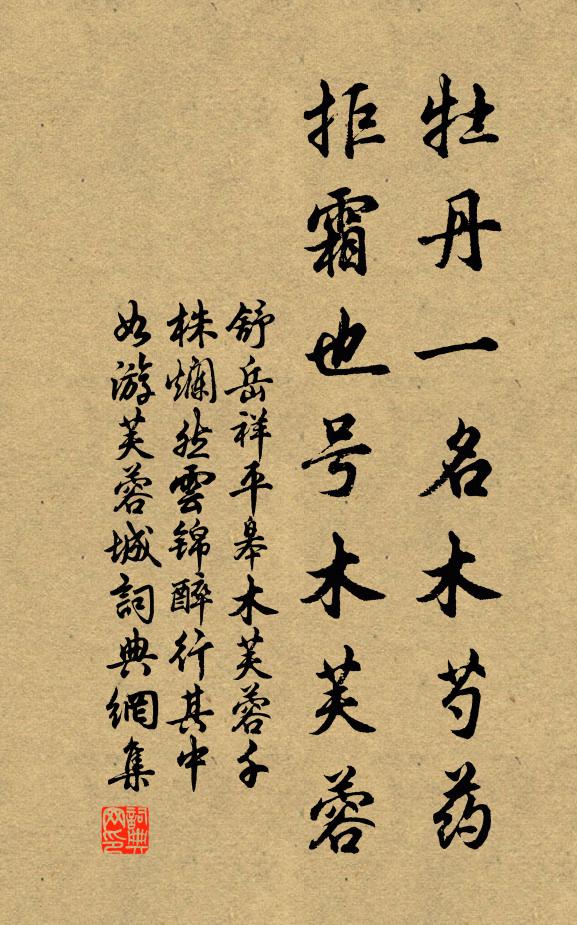 牡丹一名木芍药
拒霜也号木芙蓉
舒岳祥平皋木芙蓉千
株爛然雲錦醉行其中
如游芙蓉城詞典網集
詞典
网印